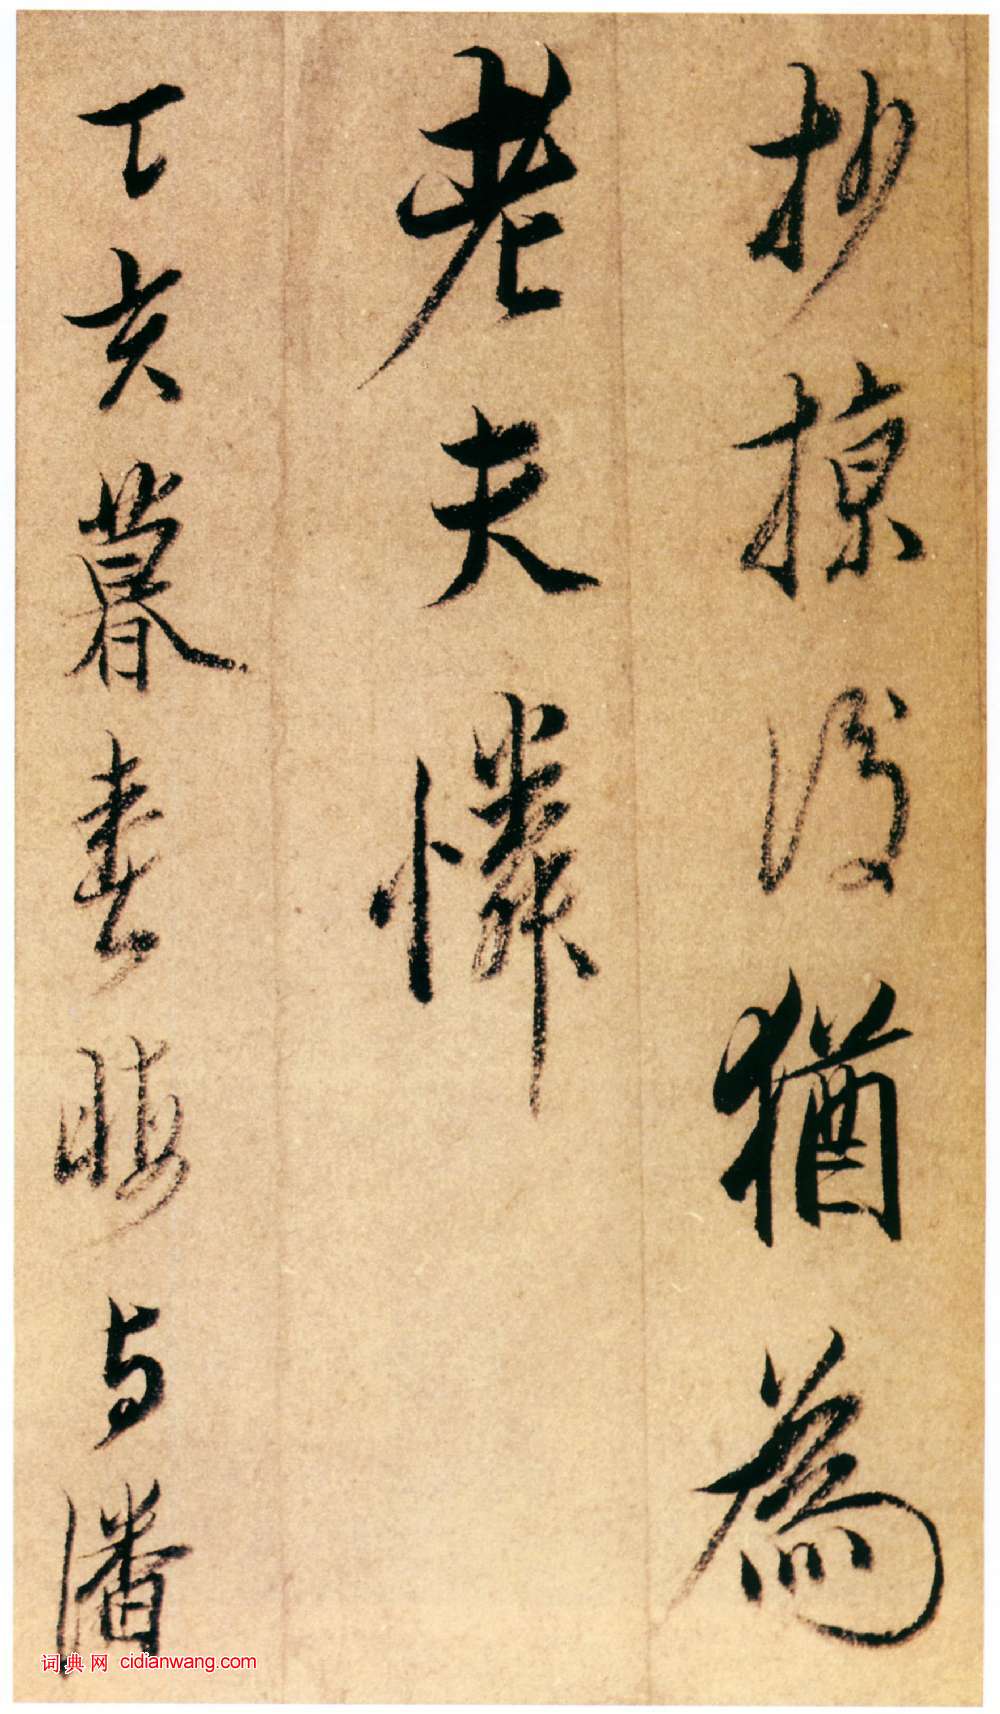 抄掠後猶為
老夫憐
丁亥暮春晦与潘
词典网 cidianwang.com